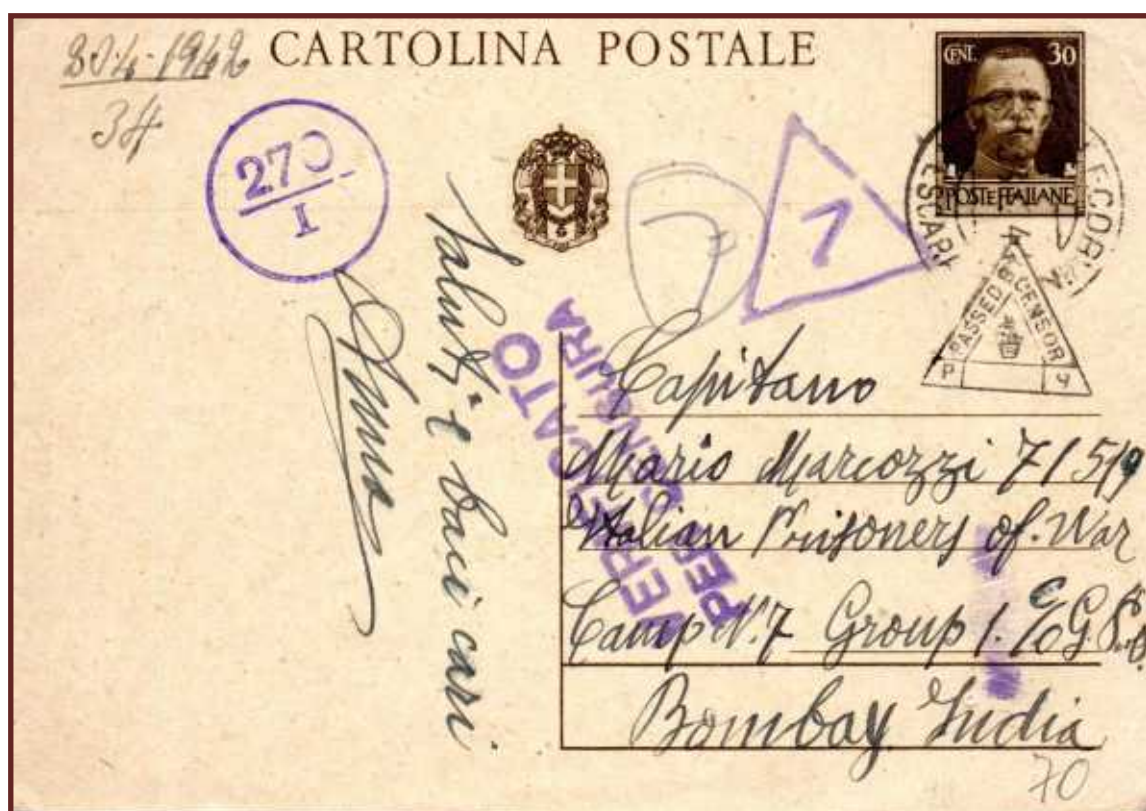 CARTOLINA POSTALE
1942
34
CENT. 30
POSTE ITALIANE
270
I
1
PASSED CENSOR
P 4
VERIFICATO
PER CENSURA
Saluti e baci cari
Capitano
Mario Marcozzi 7/519
Italian Prisoners of. War
Camp N. 7 Group 1. C/o G.
Bombay India
70